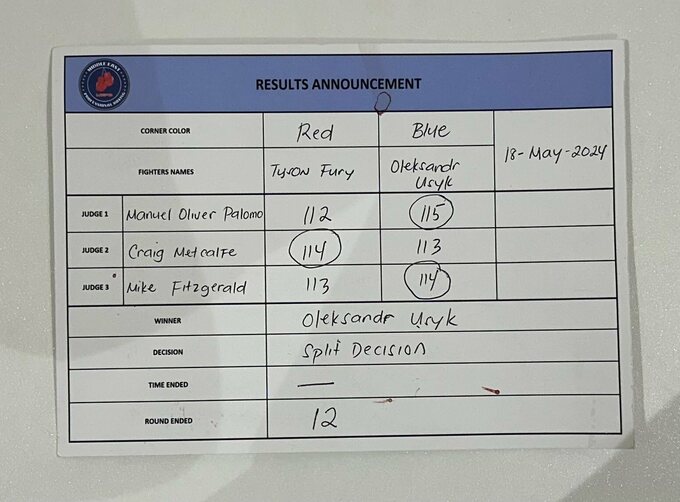 MIDDLE EAST
PROFESSIONAL BOXING
RESULTS ANNOUNCEMENT
CORNER COLOR Red Blue
18-May-2024
FIGHTERS NAMES Tyson Fury Oleksandr
Usyk
JUDGE 1 Manuel Oliver Palomo 112 115
JUDGE 2 Craig Metcalfe 114 113
JUDGE 3 Mike Fitzgerald 113 114
WINNER Oleksandr Usyk
DECISION Split Decision
TIME ENDED —
ROUND ENDED 12